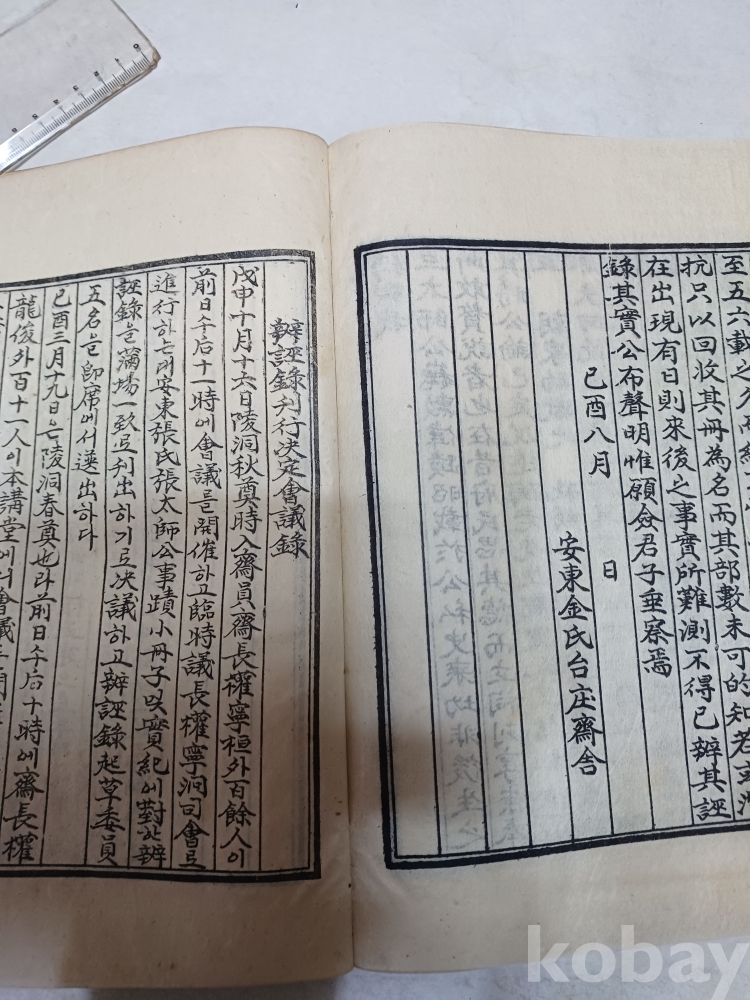 至五六載之久而
抗只以回收其冊為名而其部數未可的知若或
在出現有日則來後之事實所難測不得已辨其誣
錄其實公布聲明惟願僉君子垂察焉
己酉八月 日
安東金氏台庄齋舍
辨誣錄刊行决定會議錄
戊申十月十六日陵洞秋奠時入齋員齋長權寧桓外百餘人이
前日午后十一時에會議를開催하고臨時議長權寧洞司會로
進行하는데安東張氏張太師公事蹟小冊子以實紀에對한辨
誣錄을滿場一致로刊出하기로决議하고辨誣錄起草委員
五名을即席에서選出하다
己酉三月十九日은陵洞春奠也라前日午后十時에齋長權
龍俊外百十一人이本講堂에서會議를
kobay